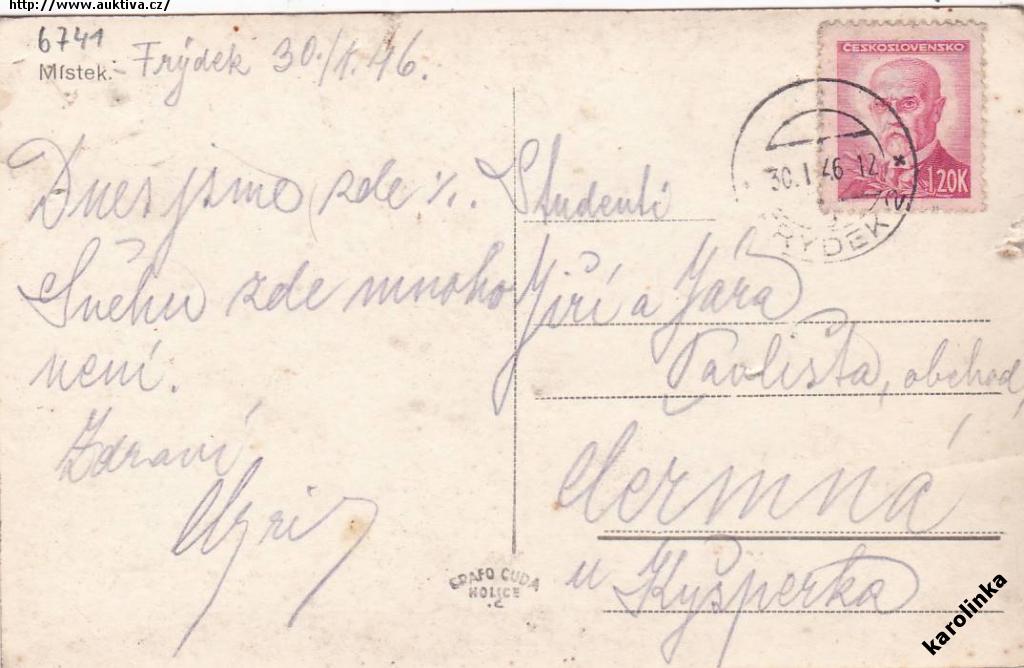 http://www.auktiva.cz/
6741
Místek. Frýdek 30./1. 46.
ČESKOSLOVENSKO
1.20K
30. I 46 12
FRÝDEK
Dnes jsme zde %.
Sněhu zde mnoho
není.
Zdraví
Studenti
Jiří a Jára
Pavlišta, obchod,
Čermná
u Kyšperka
GRAFO ČUDA
HOLICE
karolinka